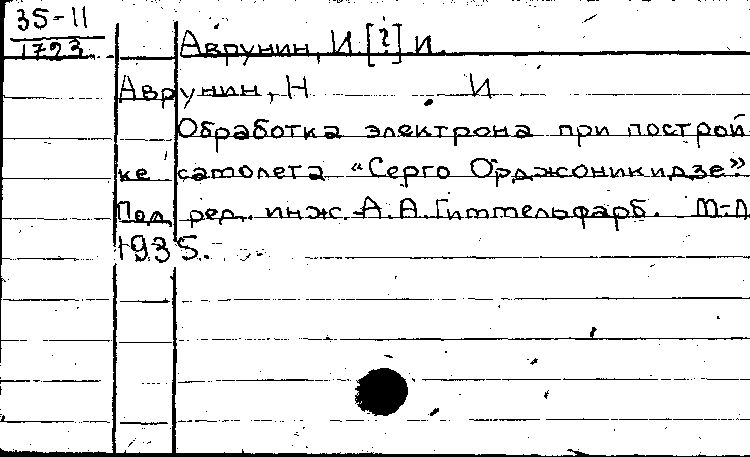 35-11
1723
Аврунин, И. [?] И.
Аврунин, Н И
Обработка электрона при построй
ке самолета "Серго Орджоникидзе"
Под ред. инж. А. А. Гиттельфарб. М-Л
1935.